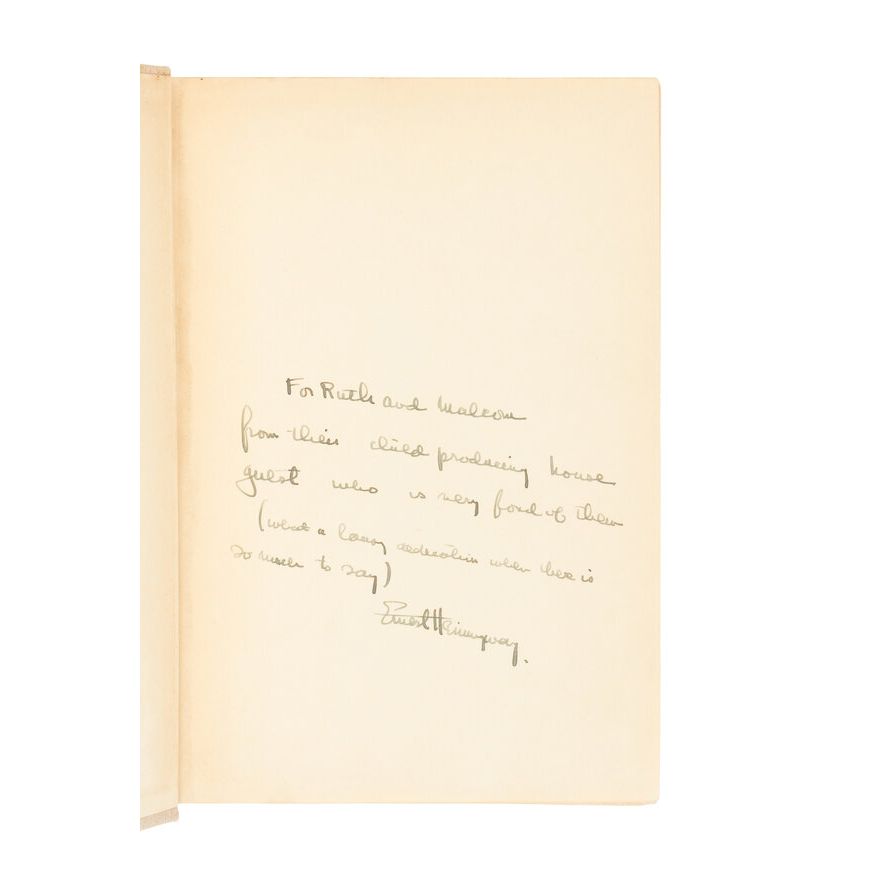 For Ruth and Malcom
from their child producing house
guest who is very fond of them
(what a lousy dedication when there is
so much to say)
Ernest Hemingway.